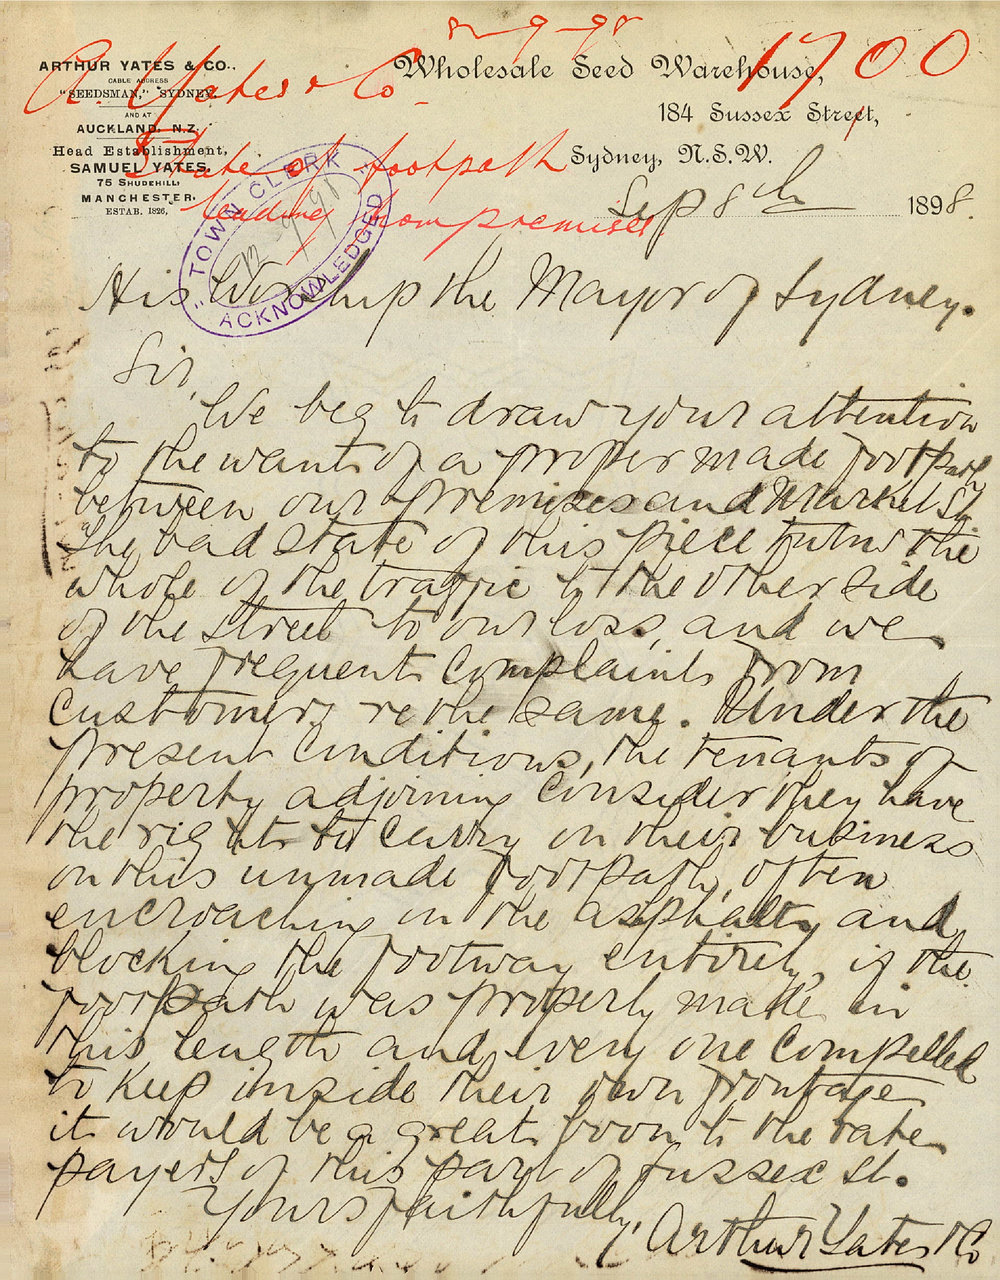 12-9-98
1700
ARTHUR YATES & CO.,
CABLE ADDRESS
"SEEDSMAN," SYDNEY.
AND AT
AUCKLAND, N.Z.
Head Establishment,
SAMUEL YATES,
75 SHUDEHILL,
MANCHESTER.
ESTAB. 1826.
Wholesale Seed Warehouse,
184 Sussex Street,
Sydney, N.S.W.
Sep 8th 1898.
A. Yates & Co
State of footpath
leading from premises
TOWN CLERK
12-9-98
ACKNOWLEDGED
His Worship the Mayor of Sydney.
Sir,
We beg to draw your attention
to the want of a proper made footpath
between our premises and Market St
The bad state of this piece turns the
whole of the traffic to the other side
of the street to our loss, and we
have frequent complaints from
customers re the same. Under the
present conditions, the tenants of
property adjoining consider they have
the right to carry on their business
on this unmade footpath, often
encroaching on the asphalte and
blocking the footway entirely, if the
footpath was properly made in
this length and every one compelled
to keep inside their own frontage
it would be a great boon to the rate
payers of this part of Sussex St.
Yours faithfully,
Arthur Yates & Co